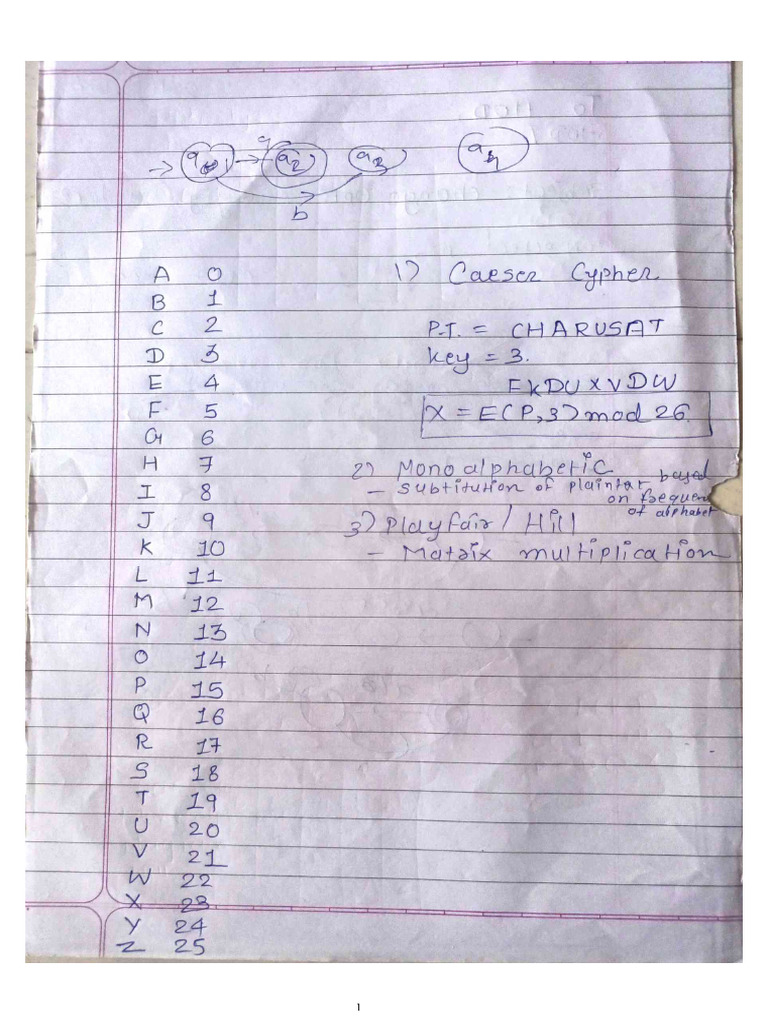 a
b
A 0
B 1
C 2
D 3
E 4
F 5
G 6
H 7
I 8
J 9
K 10
L 11
M 12
N 13
O 14
P 15
Q 16
R 17
S 18
T 19
U 20
V 21
W 22
X 23
Y 24
Z 25
1) Caeser Cypher
P.T. = CHARUSAT
key = 3.
FKDUXVDW
X = E(P,3) mod 26
2) Monoalphabetic
- Subtitution of based
on
of alphabet
3) Playfair / Hill
- Matrix multiplication
1